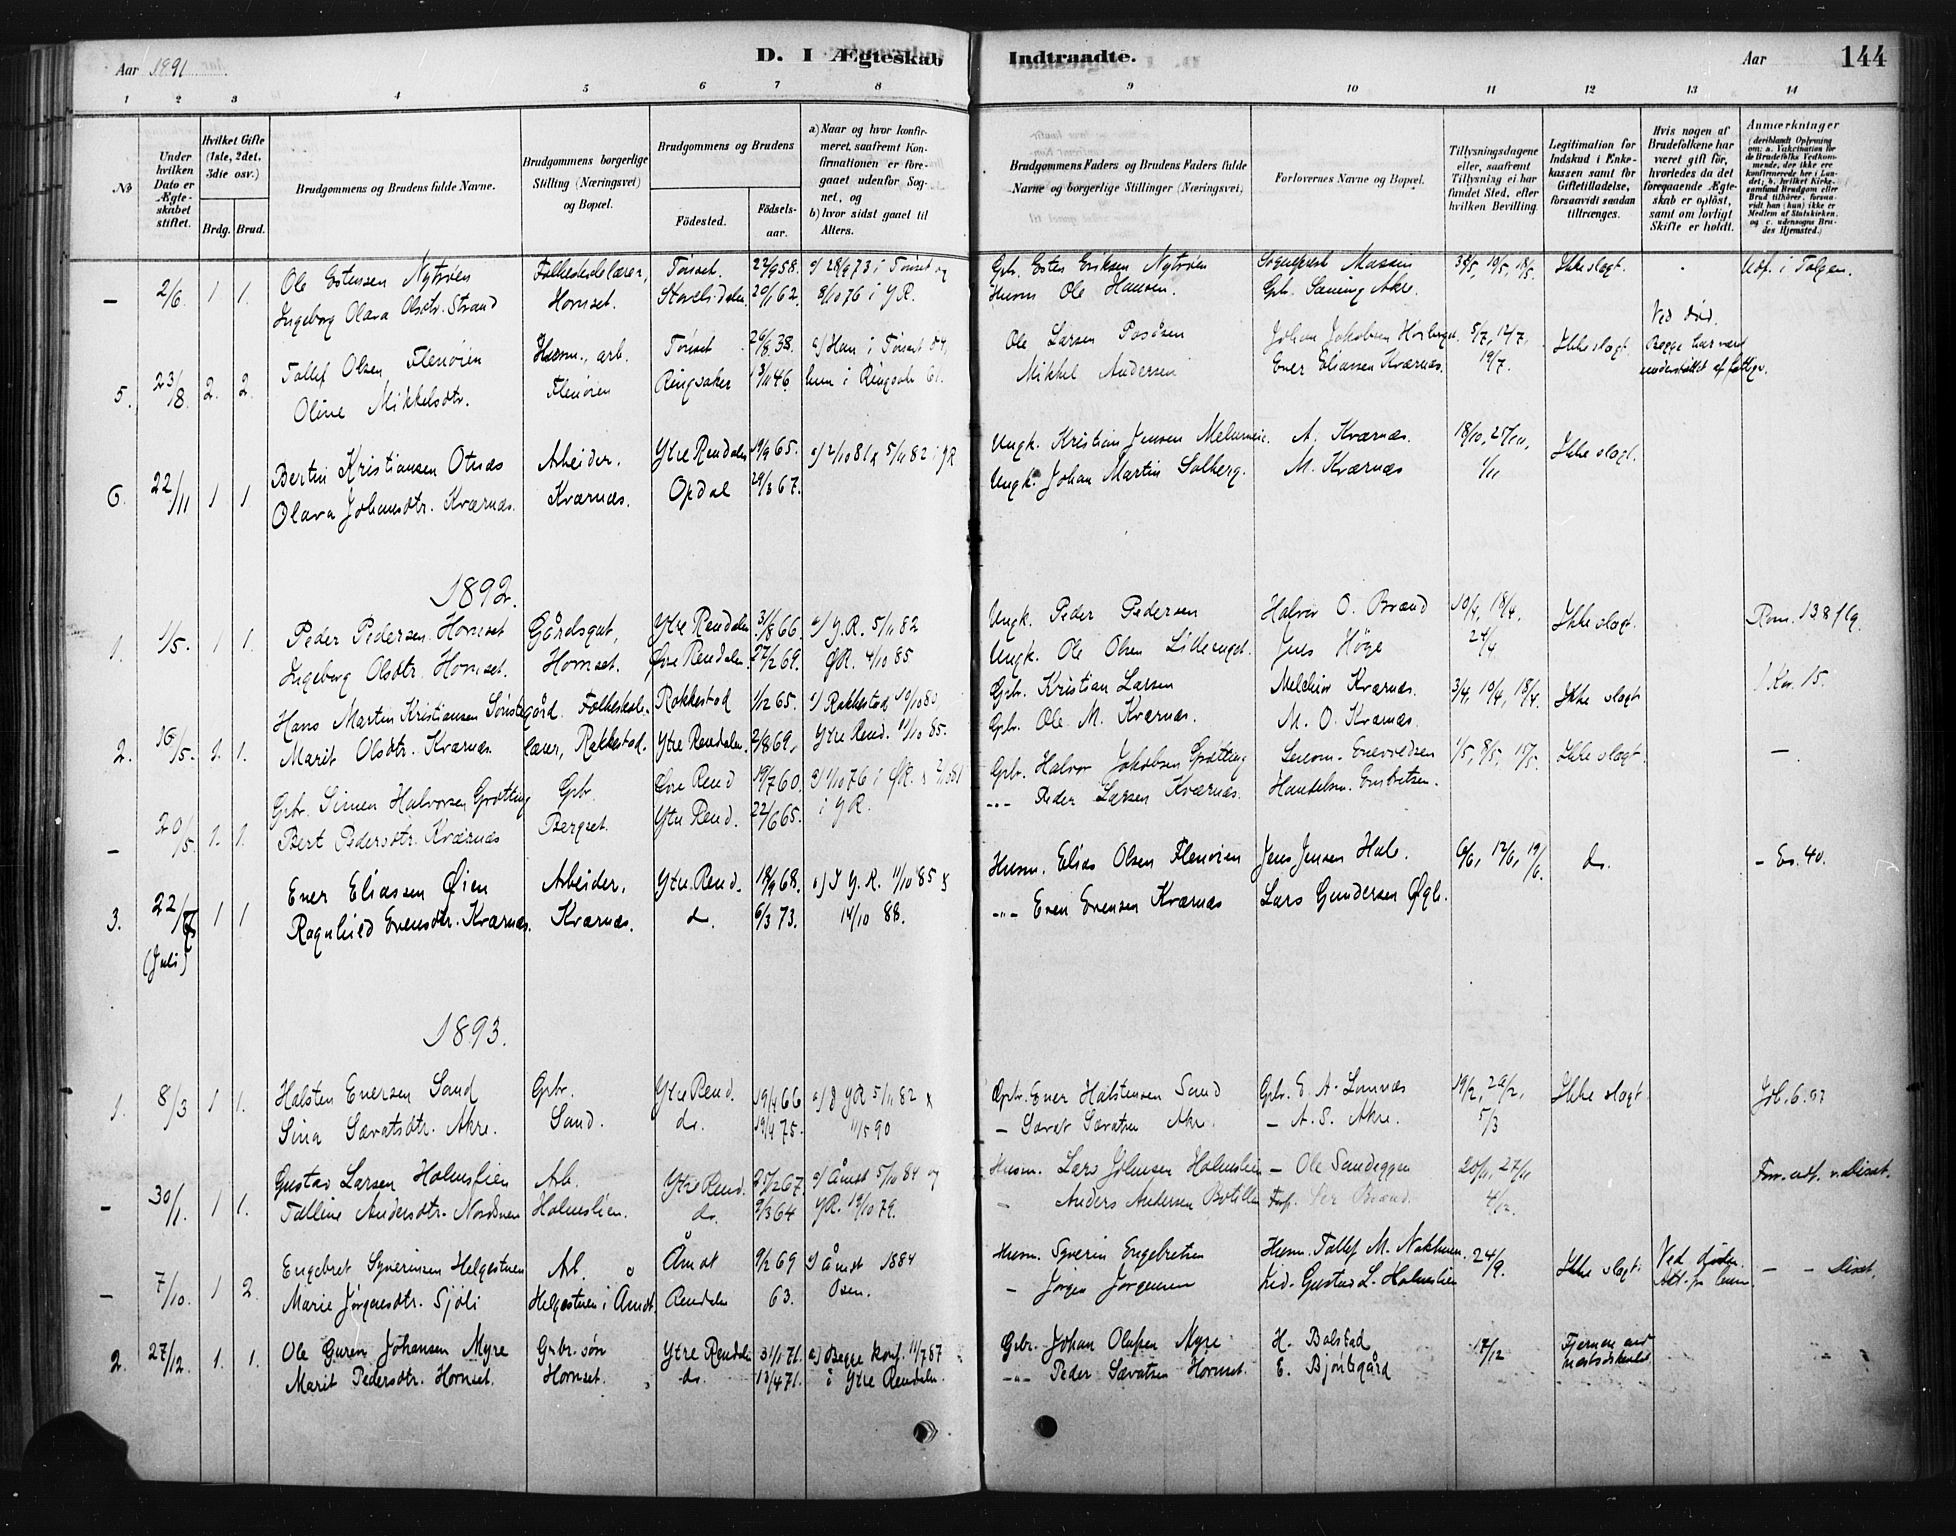 Aar 1891
D. I Ægteskab
Indtraadte.
Aar
144
1 2 3 4 5 6 7 8 9 10 11 12 13 14
No
Under hvilken Dato er Ægteskabet stiftet.
Hvilket Gifte (1ste, 2det, 3die osv.)
Brdg. Brud.
Brudgommens og Brudens fulde Navne.
Brudgommens borgerlige Stilling (Næringsvei) og Bopæl.
Brudgommens og Brudens
Fødested.
Fødselsaar.
a) Naar og hvor konfirmeret, saafremt Konfirmationen er foregaaet udenfor Sognet, og
b) hvor sidst gaaet til Alters.
Brudgommens Faders og Brudens Faders fulde Navne og borgerlige Stillinger (Næringsvei)
Forlovernes Navne og Bopæl.
Tillysningsdagene eller, saafremt Tillysning ei har fundet Sted, efter hvilken Bevilling.
Legitimation for Indskud i Enkekassen samt for Giftetilladelse, forsaavidt saadan tiltrænges.
Hvis nogen af Brudefolkene har været gift før, hvorledes da det foregaaende Ægteskab er opløst, samt om lovligt Skifte er holdt.
Anmærkninger
– 2/6 1 1. Ole Estensen Nytrøen Folkeskolelærer, Tønset. 22/9 58. a) 28/9 73 i Tønset og Gbr. Esten Eriksen Nytrøen Sogneprest Massin 10/5, 18/5. Ikke slagt. Udf. i Tolgen.
Ingeborg Olava Olsdtr. Strand Hornset. 20/1 62. 8/10 76 i Y.R. Husm. Ole Hansen. Gbr. Akre.
5. 23/8 2. 2. Tollef Olsen Flenøien Husm., arb. Tønset 38. a) Han i Tønset 54, Ole Larsen 5/7, 12/7, 19/7. Ikke slagt. Ved død. Begge har vært understøttet af fattigv.
Oline Mikkelsdtr. Flenøien Ringsaker 46. hun i Ringsaker 61. Mikkel Andersen Ener Eliassen Kværnæs.
6. 22/11 1 1 Bertin Kristiansen Otnæs Arbeider. Ytre Rendalen 19/9 65. a) 2/10 81 & 5/11 82 i YR Ungk. Kristian Jensen A. Kværnæs. 18/10, 25/10, 1/11 Ikke slagt.
Olava Johansdtr. Kværnæs. Kværnæs. Opdal 29/3 67. Ungk. Johan Martin Solberg. M. Kværnæs
1892.
1. 1/5. 1 1. Peder Pedersen Hornset Gårdsgut, Ytre Rendalen 31/8 66. a) Y.R. 5/11 82 Ungk. Peder Pedersen Halvor O. Brænd 10/4, 18/4, 24/4 Ikke slagt. Rom. 13.8 flg.
Ingeborg Olsdtr. Hornset. Hornset. Øvre Rendalen 27/2 69. ØR. 4/10 85 Ungk. Ole Olsen Lilleenget. Jens Høge
2. 16/5. 1. 1. Hans Martin Kristiansen Sønstegård Folkeskole- Rakkestad 1/12 65. a) Rakkestad 10/10 80 Gbr. Kristian Larsen Melchior Kværnæs. 3/4, 10/4, 18/4. Ikke slagt 1 Kor. 15.
Marit Olsdtr. Kværnæs lærer, Rakkestad. Ytre Rendalen 2/8 69. Ytre Rend. 11/10 85. Gbr. Ole M. Kværnæs. M. O. Kværnæs.
– 20/5. 1. 1. Gbr. Simen Halvorsen Grøtting Gbr. Øvre Rend 19/7 60. a) 1/10 76 i ØR. & Gbr. Halvor Jakobsen Grøtting Enevoldsen 1/5, 8/5, 15/5. Ikke slagt –
Bert Pedersdtr. Kværnæs Bergset. Ytre Rend. 22/6 65. i YR. –"– Peder Larsen Kværnæs. Handelsm. Embretsen.
3. 22/7 (Juli) 1 1 Ener Eliassen Øien Arbeider. Ytre Rend. 18/9 68. a) I Y.R. 11/10 85 & Husm. Elias Olsen Flenøien Jens Jensen Hale. 6/6, 12/6, 19/6. do. – Es. 40.
Ragnhild Evensdtr. Kværnæs. Kværnæs. do. 6/3 73. 14/10 88. –"– Even Evensen Kværnæs Lars Gundersen Øgle.
1893.
1. 8/3 1 1. Halsten Enersen Sand Gbr. Ytre Rend. 19/4 66 a) I YR 5/11 82 & Gbr. Ener Halstensen Sand Gbr. E. A. Lomnæs 19/2, 26/2, 5/3 Ikke slagt Joh. 6.
Sina Sævatsdtr. Akre. Sand. do. 19/4 75. 11/5 90 – Sævat Sævatsen Akre. – A. S. Akre.
– 30/1. 1 1. Gustav Larsen Holmslien Arb. Ytre Rend. 25/2 67. a) Åmot 5/10 84 og Husm. Lars Johnsen Holmslien – Ole Sandeggen 20/11, 27/11 4/12. For. utf. v. Disst.
Talline Andersdtr. Nordsven Holmslien. do. 9/3 64 YR. 19/10 79. – Anders Andersen Per Brænd.
– 7/10. 1 2. Engebret Syverinsen Helgestuen Arb. Åmot 9/2 69 I Åmot 1884 Husm. Syverin Engebretsen Husm. Tollef M. Nakken. 24/9. Ikke slagt. Ved døden. – – Disst.
Marie Jørgensdtr. Sjøli Helgestuen i Åmot. Rendalen 63. Osen. – Jørgen Jørgensen Gustav L. Holmslien Att. fr. lensm.
2. 27/12. 1. 1. Ole Guren Johansen Myre Gbr.søn Ytre Rendalen 31/1 71. a) Begge konf. 11/7 87 Gbr. Johan Olufsen Myre H. Bolstad 17/12
Marit Pedersdtr. Hornset. Hornset. do. 13/4 71. i Ytre Rendalen. –"– Peder Sævatsen Hornset. E. Bjøntegård